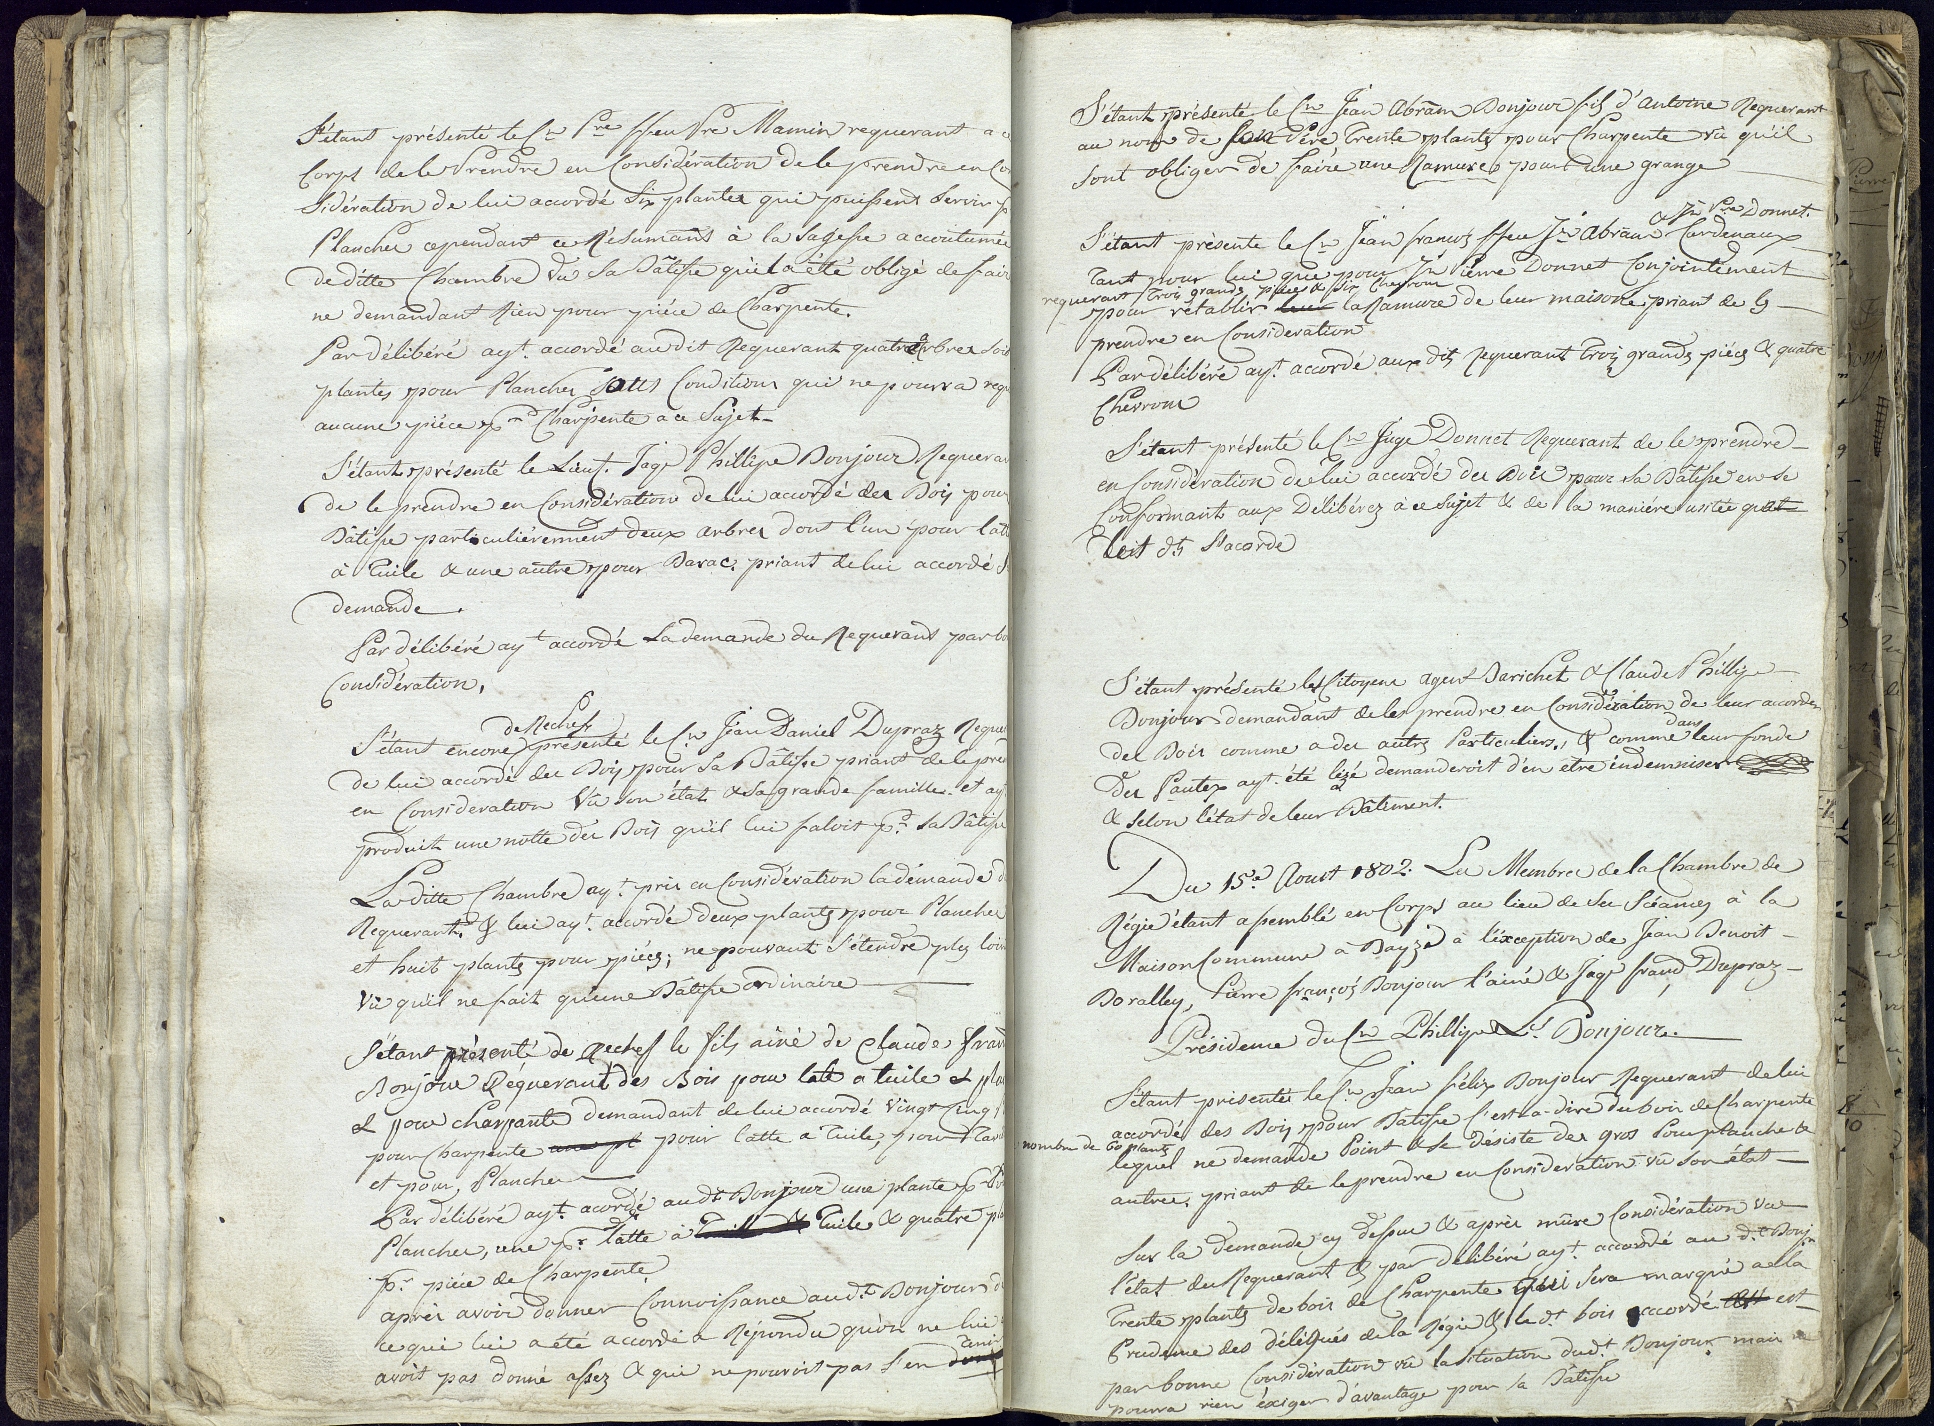 S'étant présenté le Cn Pre ffeu Pre Mamin requerant a ce
Corps de le Prendre en Considération de le prendre en Con
sidération de lui accordé Six plantes qui puissent Servir p
Plancher cependant ce Résumant à la Sagesse accoutumée
de ditte Chambre Vu Sa Bâtisse qu'il a été obligé de fair
ne demandant Rien pour piéce de Charpente.
Par délibéré ayt. accordé au dit Requerant quatre arbres Soit
plantes pour Plancher sous Conditions qui ne pourra requ
aucune piéce pr Charpente a ce Sujet
S'étant présenté le Lieut. Jage Phillipe Bonjour Requeran
de le prendre en Considération de lui accordé des Bois pour
Bâtisse particuliérement deux arbres dont l'un pour latte
à Tuile & une autre pour Barac. priant de lui accordé S
demande.
Par délibéré ayt accordé La demande du Requerant par bo
Considération,
de Rechef
S'étant encore présenté le Cn Jean Daniel Dupraz Reque
de lui accordé des Bois pour Sa Bâtisse priant de le pren
en Consideration Vû Son état & Sa grande famille. et ay
produit une notte des Bois qu'il lui faloit pr. Sa Bâtisse
La ditte Chambre ayt. pris en Considération la demande d
Requerant. & lui ayt. accordé deux plantes pour Plancher
et huit plantes pour piéces; ne pouvant S'étendre plus loin
Vû qu'il ne fait qu'une Bâtisse ordinaire
S'étant présenté de Rechef le fils ainé de Claude fran
Bonjour Réquerant des Bois pour latte a tuile & plan
& pour charpante demandant de lui accordé Vingt Cinq
pour Charpente pour latte à Tuile, pour
et pour Plancher
Par délibéré ayt. acordé au dt Bonjour une plante pr
Plancher, une pr. latte à Tuile & quatre pla
pr. piéce de Charpente
après avoir donner Connoissance au dt. Bonjour d
ce qui lui a été accordé a Répondu qu'on ne lui
avoit pas donné assez & qui ne pouvoit pas S'en
S'étant présenté le Cn Jean Abram Bonjour fils d'Antoine Requerant
au nom de son Pére Trente plantes pour Charpente vû qu'il
Sont obliger de faire une Ramure pour une grange
& Jn Pre Donnet.
S'étant présente le Cn Jean francois ffeu Jn Abram Cardinaux
Tant pour lui que pour Jn Pierre Donnet Conjointement
requerant Trois grands piéces & Six Chevrons
pour rétablir la Ramure de leur maison priant de les
prendre en Consideration
Par délibéré ayt. accordé aux dits Requerant Trois grands piéces & quatre
Chevrons
S'étant présenté le Cn Juge Donnet Requerant de le prendre
en Considération de lui accordé des Bois pour Sa Bâtisse en Se
Conformant aux Délibérés à ce Sujet & de la maniére usitée
S'acorde
S'étant présenté les Citoyens agent Barichet & Claude Phillipe
Bonjour demandant de les prendre en Considération de leur accorder
des Bois comme a des autres Particuliers, & comme dans leur fonds
des Pautex ayt. été lézé demanderoit d'en etre indemniser
& Selon l'état de leur Bâtiment.
Du 15.e Aoust 1802. Les Membres de la Chambre de
Régie s'étant assemblé en Corps au lieu de Ses Séances à la
Maison Commune à Bayze à l'éxception de Jean Benoit
Boralley, Pierre françois Bonjour l'ainé & Jage franç. Dupraz
Présidence du Cn Phillipe Ls. Bonjour.
S'étant presenté le Cn Jean félix Bonjour Requerant de lui
accordé des Bois pour Bâtisse C'est-a-dire du bois de Charpente
nombre de 60 plants
lequel ne demande Point & Se désiste des gros Pour planche &
autres. priant de le prendre en Consideration vû Son état
Sur la demande cy dessus & après mûre Considération vu
l'état du Requerant & par délibéré ayt. accordé au dt Bonjr
Trente plants de bois de Charpente qui Sera marqué a la
Prudence des délégués de la Régie & le dt bois accordé est
par bonne Considération vû la Situation du dt Bonjour mais ne
pourra rien éxiger d'avantage pour Sa Bâtisse